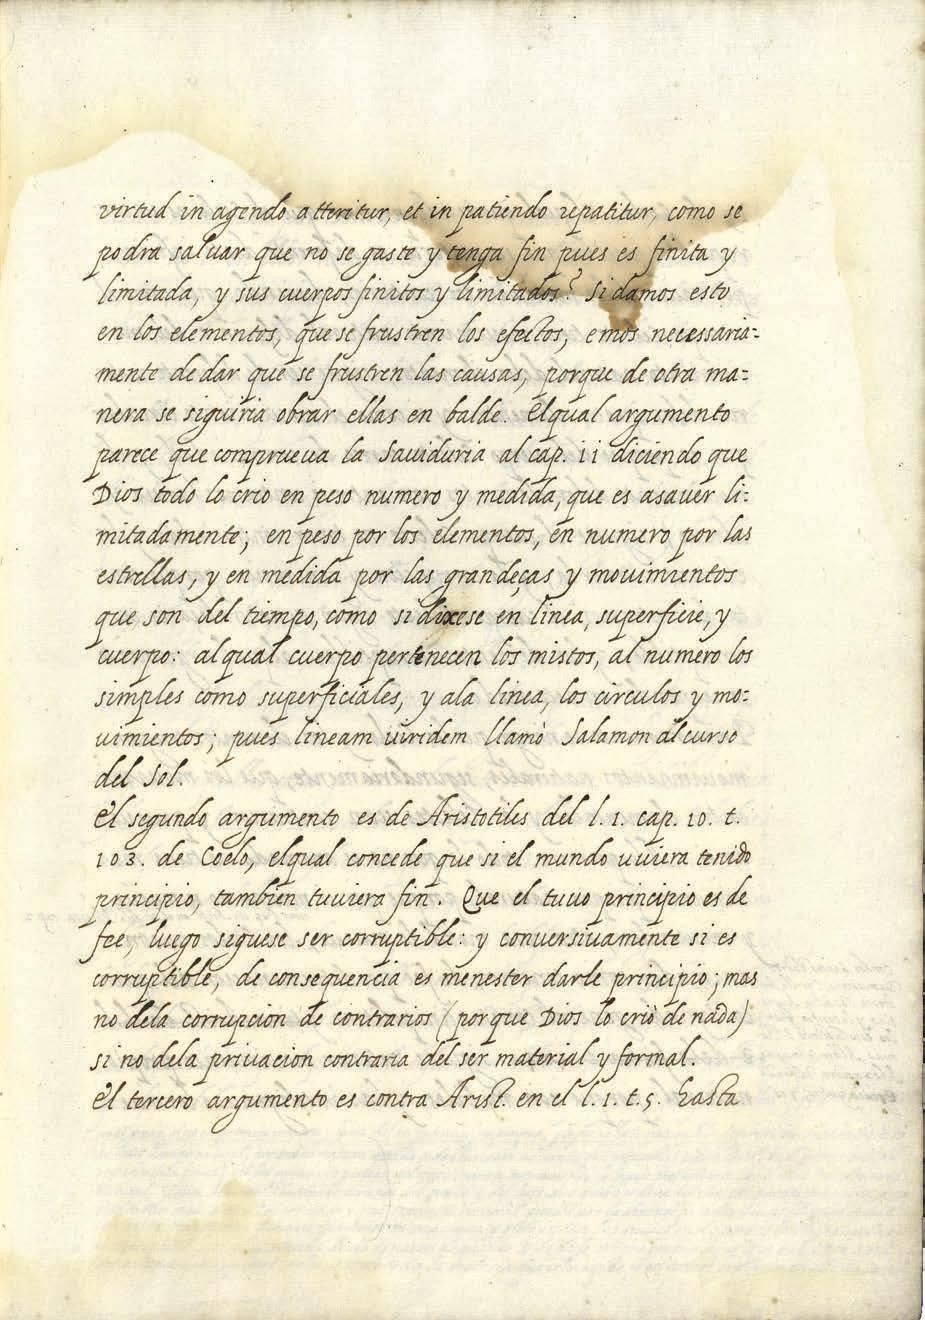 virtud in agendo atteritur, et in patiendo repatitur, como se
podra saluar que no se gaste y tenga fin pues es finita y
limitada, y sus cuerpos finitos y limitados? Si damos esto
en los elementos, que se frustren los efectos, emos necessaria=
mente de dar que se frustren las causas, porque de otra ma=
nera se siguiria obrar ellas en balde. Elqual argumento
parece que comprueua la Sauiduria al cap. 11 diciendo que
Dios todo lo crio en peso numero y medida, que es asauer li=
mitadamente; en peso por los elementos, en numero por las
estrellas, y en medida por las grandeças y mouimientos
que son del tiempo, como si dixese en linea, superficie, y
cuerpo: alqual cuerpo pertenecen los mistos, al numero los
simples como superficiales, y ala linea, los circulos y mo=
uimientos; pues lineam uiridem llamò Salamon al curso
del Sol.
El segundo argumento es de Aristotiles del l. 1. cap. 10. t.
103. de Coelo, elqual concede que si el mundo uuiera tenido
principio, tambien tuuiera fin. Que el tuuo principio es de
fee, luego siguese ser corruptible: y conversiuamente si es
corruptible, de consequencia es menester darle principio; mas
no dela corrupcion de contrarios (porque Dios lo criò de nada)
si no dela priuacion contraria del ser material y formal.
El tercero argumento es contra Arist. en el l. 1. t. 5. hasta